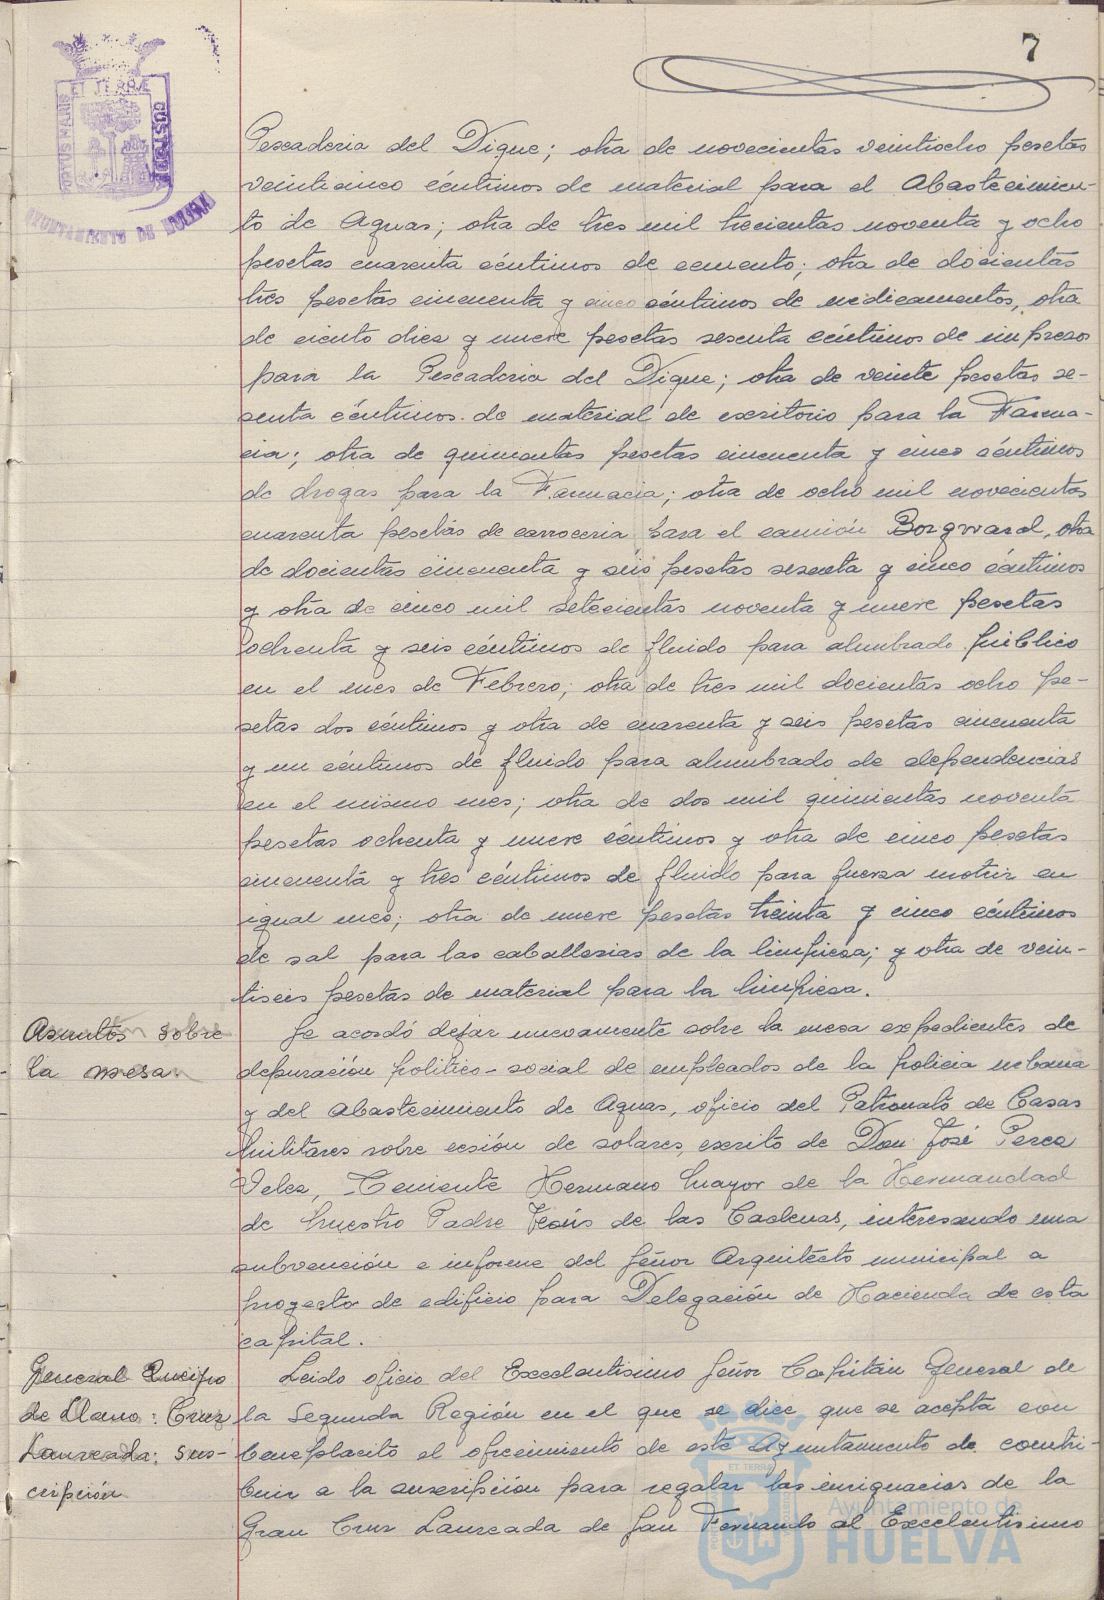 7
PORTUS MARIS ET TERRÆ CUSTODIA
AYUNTAMIENTO DE HUELVA
Pescaderia del Dique; otra de novecientas veintiocho pesetas
veinticinco céntimos de material para el Abastecimien-
to de Aguas; otra de tres mil trecientas noventa y ocho
pesetas cuarenta céntimos de cemento; otra de docientas
tres pesetas cincuenta y cinco céntimos de medicamentos, otra
de ciento diez y nueve pesetas sesenta céntimos de impresos
para la Pescaderia del Dique; otra de veinte pesetas se-
senta céntimos de material de escritorio para la Farma-
cia; otra de quinientas pesetas cincuenta y cinco céntimos
de drogas para la Farmacia; otra de ocho mil novecientas
cuarenta pesetas de carroceria para el camión Borgward, otra
de docientas cincuenta y seis pesetas sesenta y cinco céntimos
y otra de cinco mil setecientas noventa y nueve pesetas
ochenta y seis céntimos de fluido para alumbrado público
en el mes de Febrero; otra de tres mil docientas ocho pe-
setas dos céntimos y otra de cuarenta y seis pesetas cincuenta
y un céntimos de fluido para alumbrado de dependencias
en el mismo mes; otra de dos mil quinientas noventa
pesetas ochenta y nueve céntimos y otra de cinco pesetas
cincuenta y tres céntimos de fluido para fuerza motriz en
igual mes; otra de nueve pesetas treinta y cinco céntimos
de sal para las caballerias de la limpieza; y otra de vein-
tiseis pesetas de material para la limpieza.
Asuntos sobre
la mesa
Se acordó dejar nuevamente sobre la mesa expedientes de
depuración politico-social de empleados de la policia urbana
y del Abastecimiento de Aguas, oficio del Patronato de Casas
Militares sobre cesión de solares, escrito de Don José Perez
Velez, Teniente Hermano Mayor de la Hermandad
de Nuestro Padre Jesús de las Cadenas, interesando una
subvención e informe del Señor Arquitecto municipal a
proyecto de edificio para Delegación de Hacienda de esta
capital.
General Queipo
de Llano: Cruz
Laureada: sus-
cripción
Leido oficio del Excelentisimo Señor Capitán General de
la Segunda Región en el que se dice que se acepta con
beneplacito el ofrecimiento de este Ayuntamiento de contri-
buir a la suscripción para regalar las insignacias de la
Gran Cruz Laureada de San Fernando al Excelentisimo
Ayuntamiento de
HUELVA